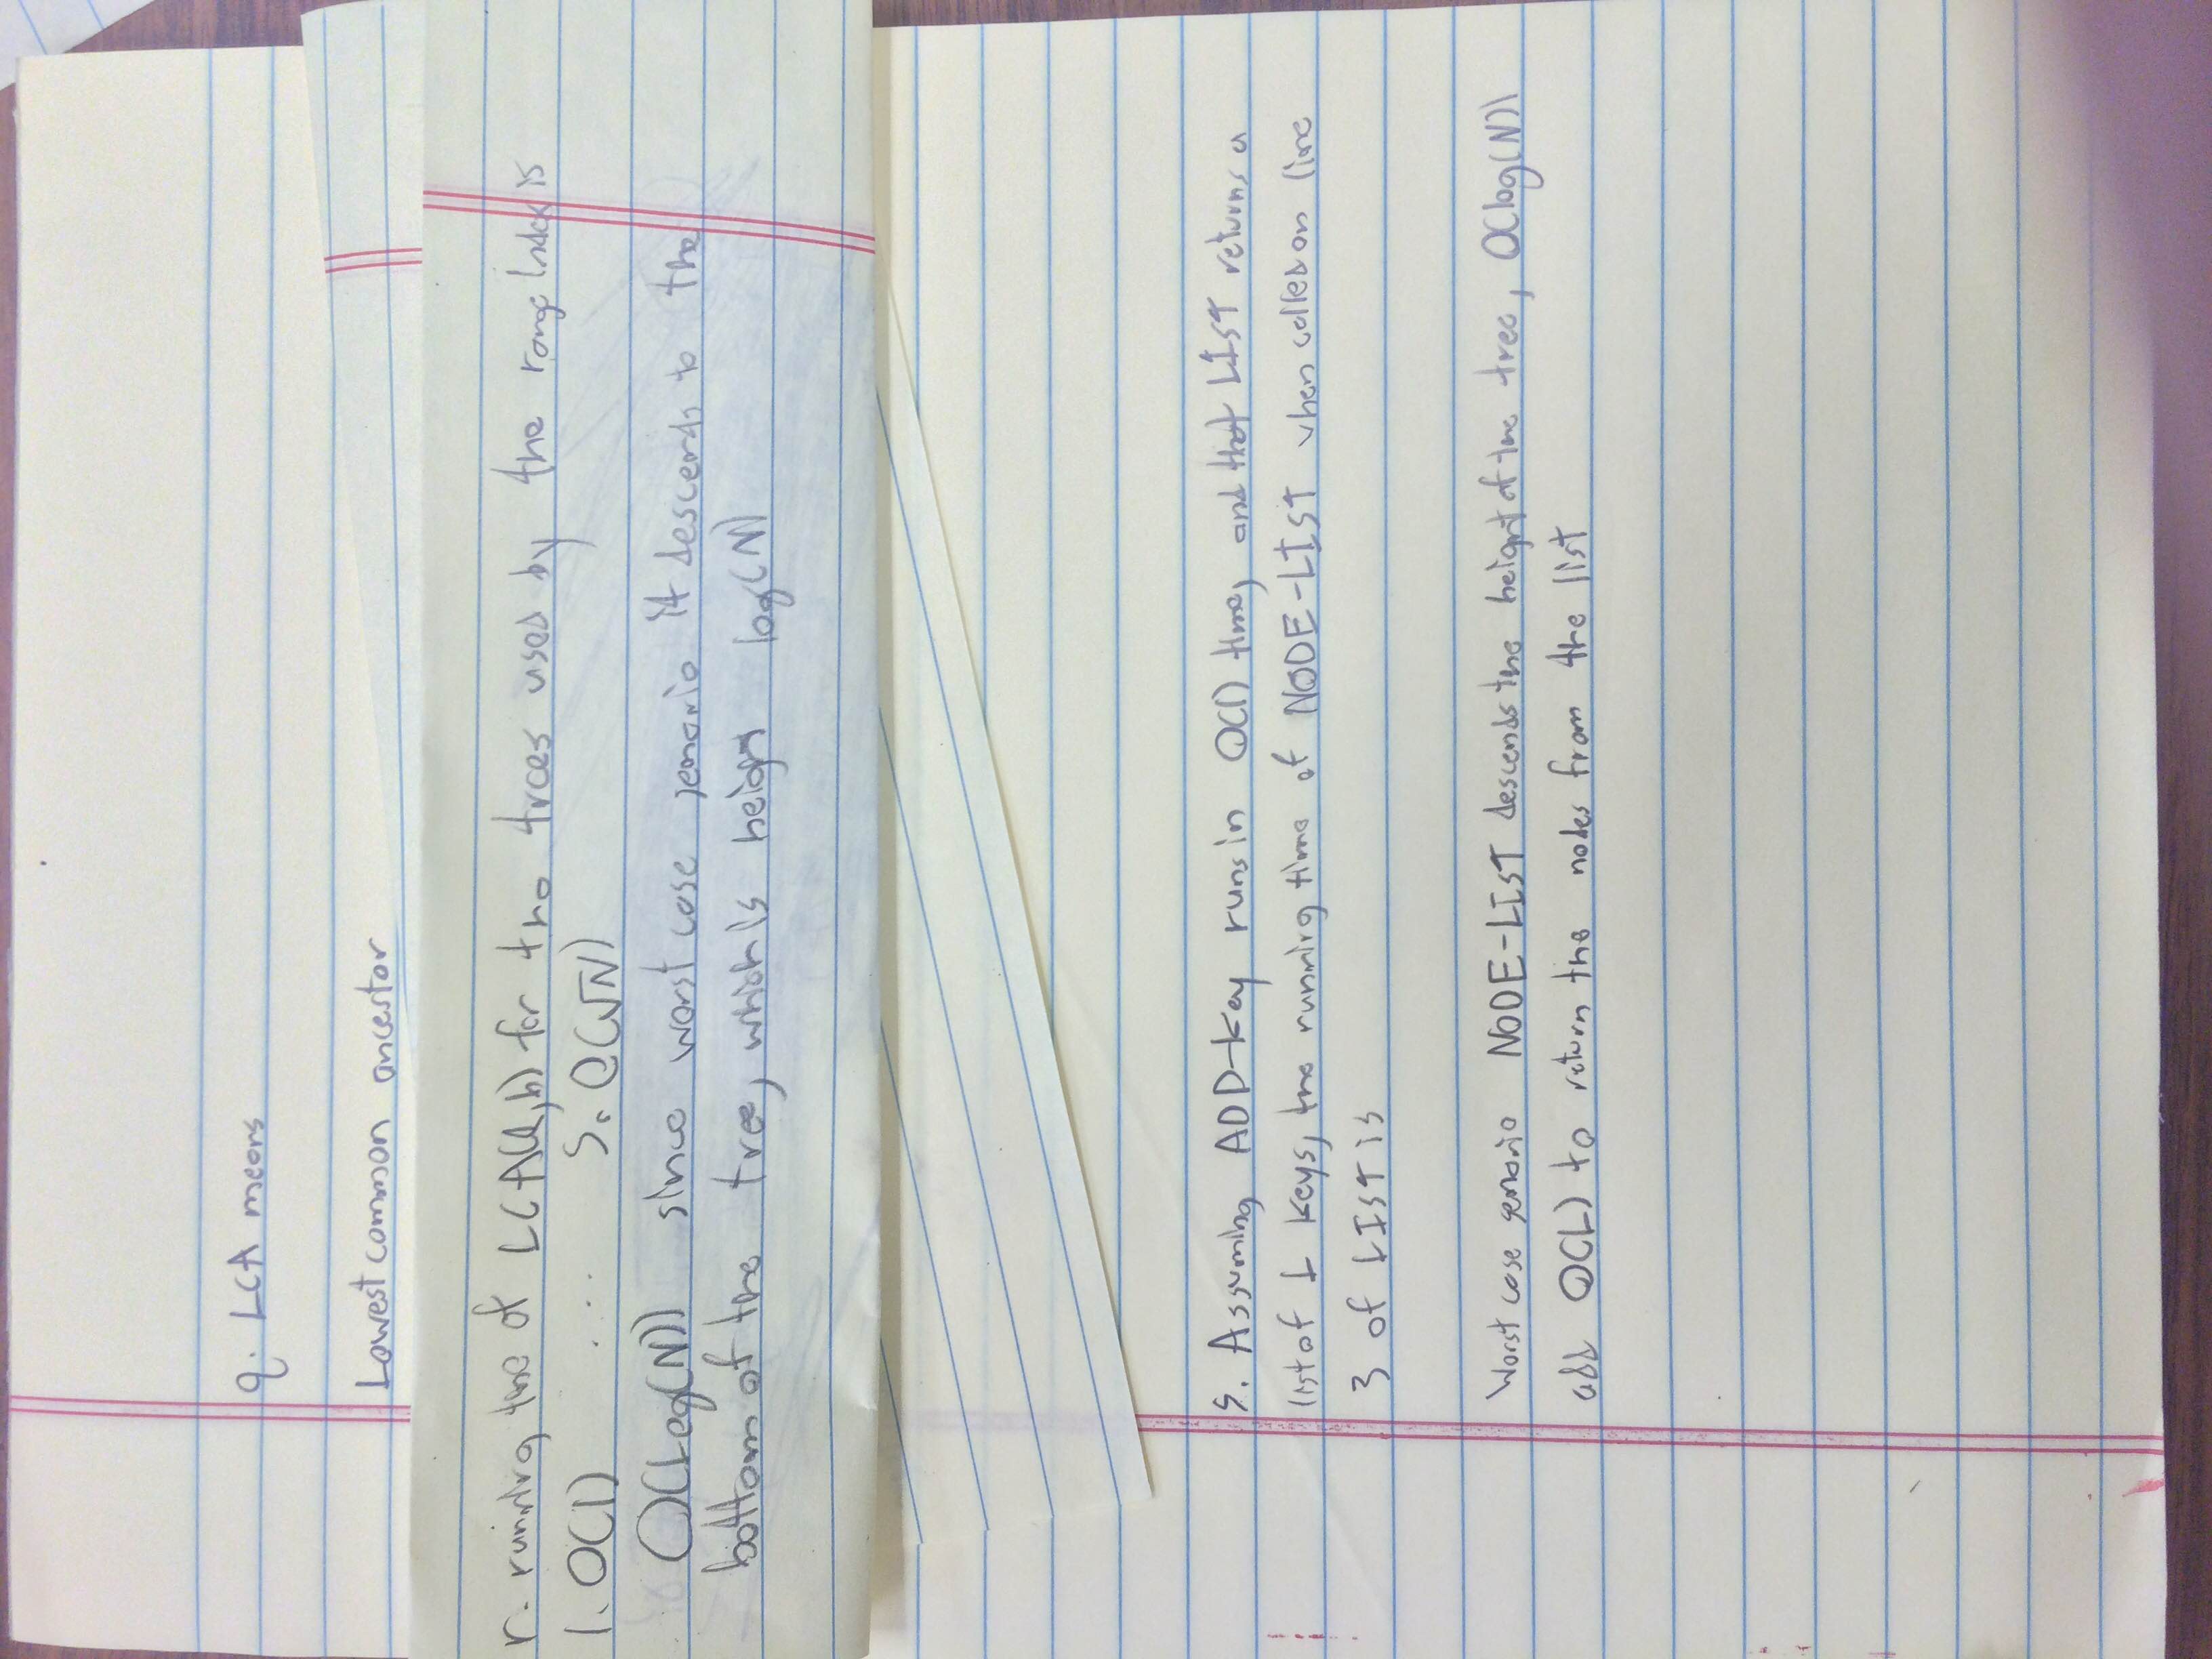 q. LCA means
Lowest common ancestor
r. running time of LCA(l,h) for the trees used by the range Index is
1. O(1) ... 5. Θ(√N)
O(Log(N)) since worst case senario it descends to the
bottom of the tree, which is height log(N)
s. Assuming ADD-key runs in O(1) time, and that LIST returns a
list of L keys, the running time of NODE-LIST when called on line
3 of LIST is
Worst case senario NODE-LIST descends the height of the tree, O(log(N))
add O(L) to return the nodes from the list